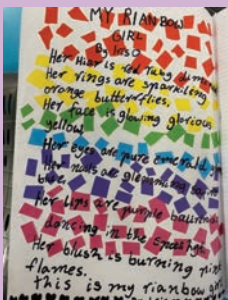 MY RIANBOW
GIRL
By Inso
Her Hiar is red ruby,
Her rings are sparkling
orange butterflies.
Her face is glowing glorious
yellow.
Her eyes are pure emerald,
Her nails are gleamming
blue.
Her lips are purple ballerinas
dancing in the spotlight.
Her blush is burning pink
flames.
this is my rianbow